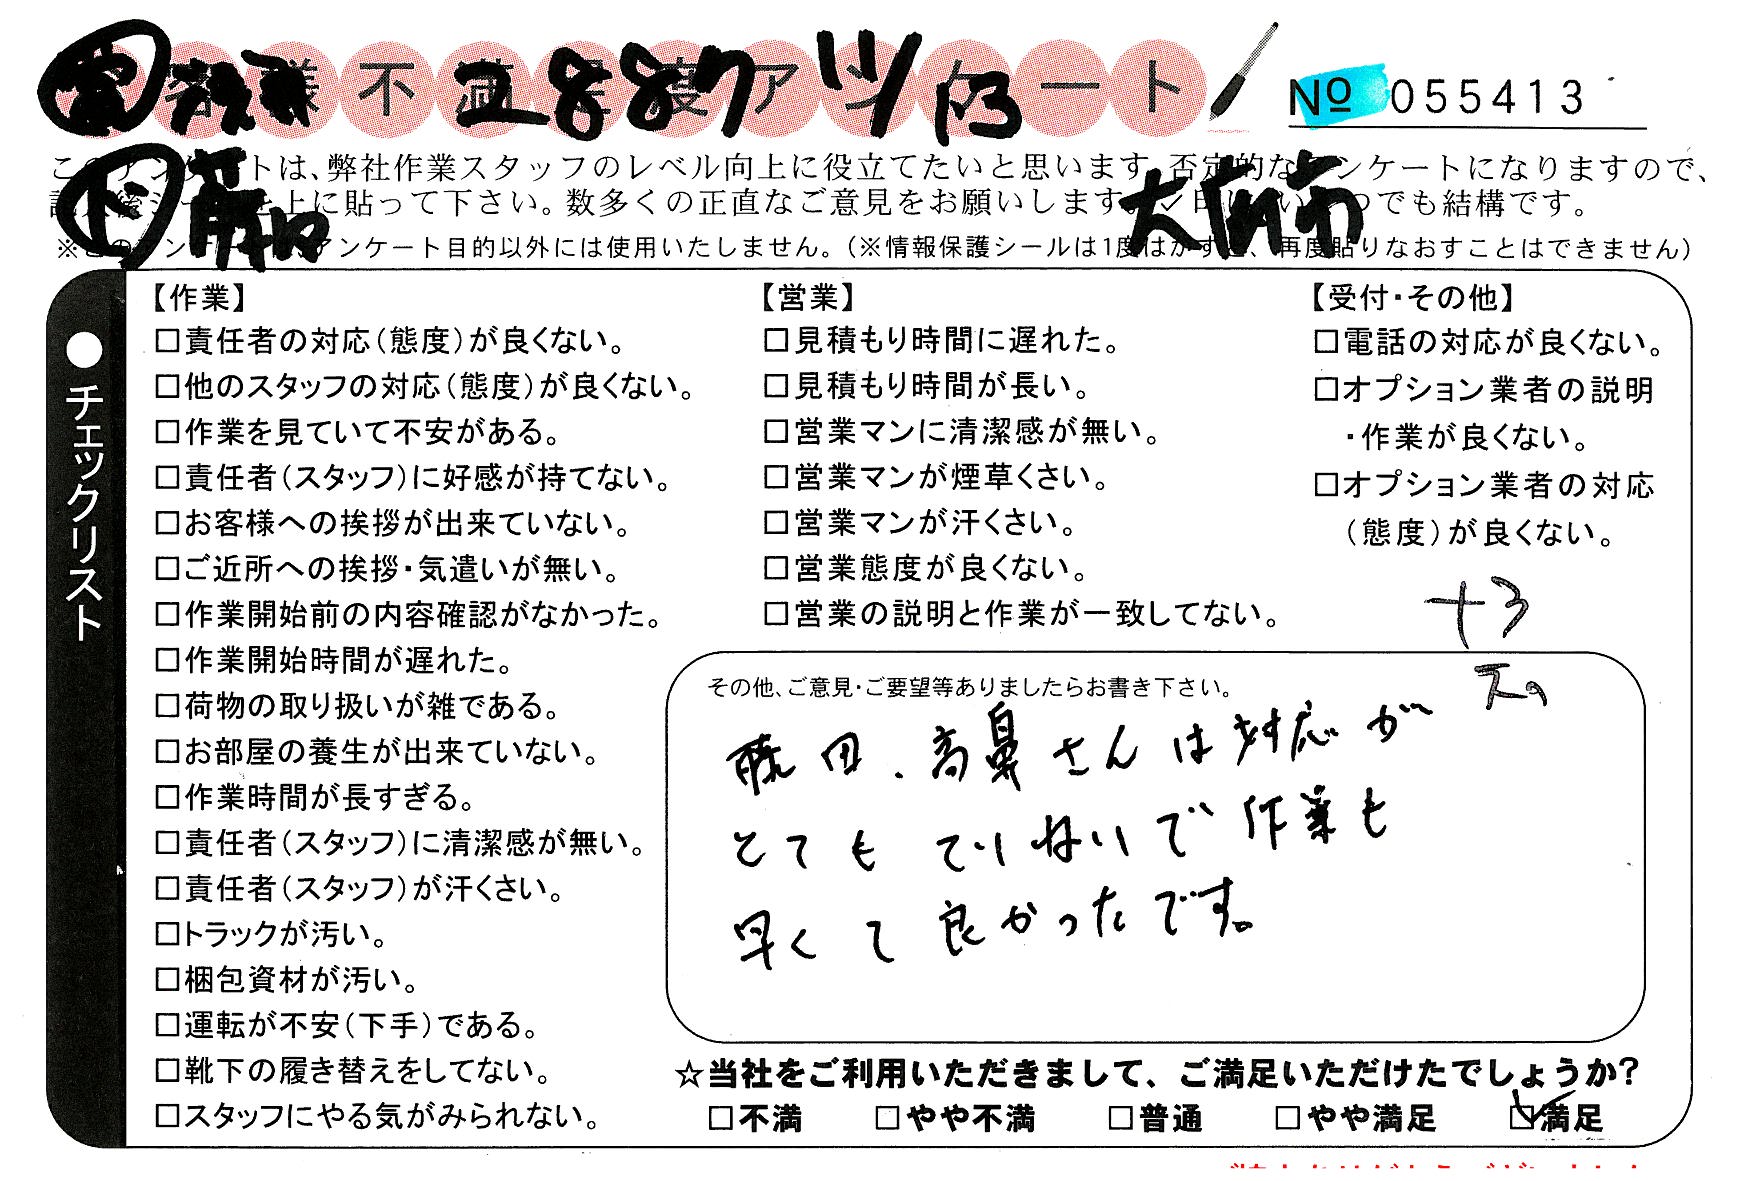 お客様不満足度アンケート
2887 11/13
No 055413
このアンケートは、弊社作業スタッフのレベル向上に役立てたいと思います。否定的なアンケートになりますので、
記入後シールを上に貼って下さい。数多くの正直なご意見をお願いします。
つでも結構です。
大阪市
※このアンケートはアンケート目的以外には使用いたしません。（※情報保護シールは1度はがすと、再度貼りなおすことはできません）
●チェックリスト
【作業】
□責任者の対応（態度）が良くない。
□他のスタッフの対応（態度）が良くない。
□作業を見ていて不安がある。
□責任者（スタッフ）に好感が持てない。
□お客様への挨拶が出来ていない。
□ご近所への挨拶・気遣いが無い。
□作業開始前の内容確認がなかった。
□作業開始時間が遅れた。
□荷物の取り扱いが雑である。
□お部屋の養生が出来ていない。
□作業時間が長すぎる。
□責任者（スタッフ）に清潔感が無い。
□責任者（スタッフ）が汗くさい。
□トラックが汚い。
□梱包資材が汚い。
□運転が不安（下手）である。
□靴下の履き替えをしてない。
□スタッフにやる気がみられない。
【営業】
□見積もり時間に遅れた。
□見積もり時間が長い。
□営業マンに清潔感が無い。
□営業マンが煙草くさい。
□営業マンが汗くさい。
□営業態度が良くない。
□営業の説明と作業が一致してない。
【受付・その他】
□電話の対応が良くない。
□オプション業者の説明
・作業が良くない。
□オプション業者の対応
（態度）が良くない。
+3
その他、ご意見・ご要望等ありましたらお書き下さい。
藤田、高鼻さんは対応が
とても ていねいで 作業も
早くて 良かったです。
☆当社をご利用いただきまして、ご満足いただけたでしょうか？
□不満 □やや不満 □普通 □やや満足 ☑満足